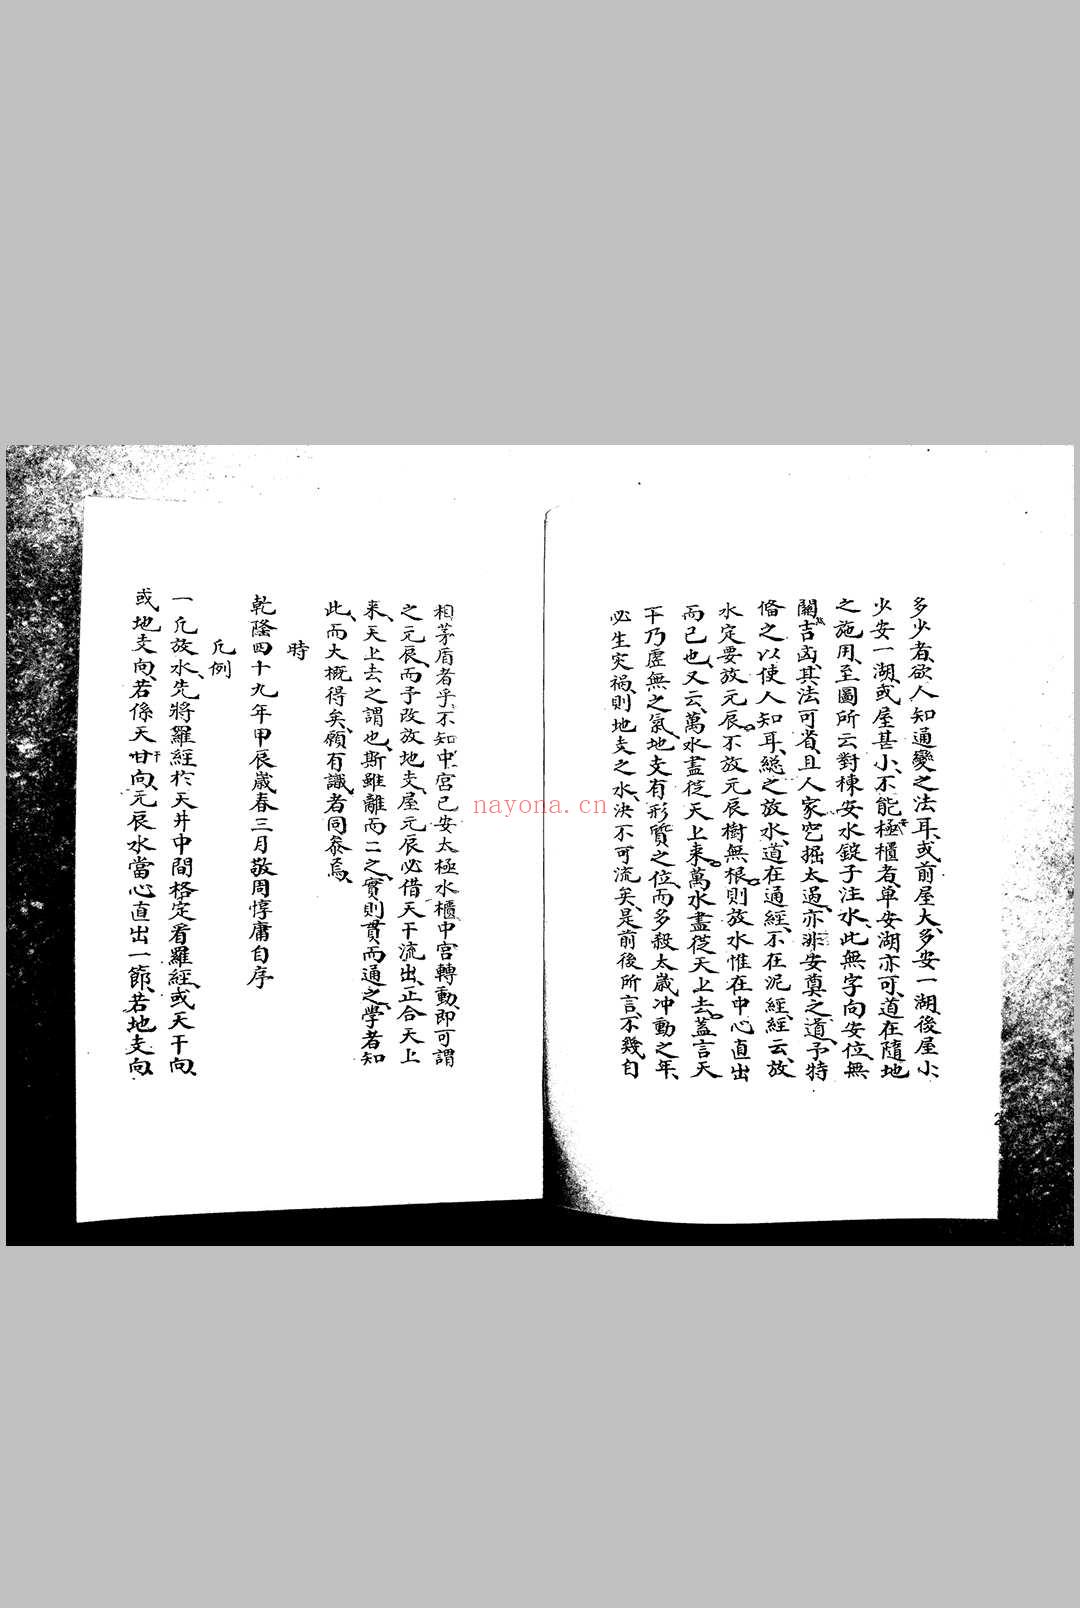 多少者、欲人知通變之法耳、或前屋大、多安一湖、後屋小、
少安一湖、或屋甚小、不能極安櫃者、單安湖亦可、道在隨地
之施用、至圖所云對棟安水錠子注水、此無字向安位、無
關吉凶、其法可省、且人家穵掘太過、亦非安奠之道、予特
偹之以使人知耳、総之放水、道在通經、不在泥經、經云、放
水定要放元辰。不放元辰樹無根。則放水惟在中心直出
而已也、又云、萬水盡從天上来。萬水盡從天上去。蓋言天
干乃虛無之氣、地支有形質之位、而多殺太歲冲動之年、
必生灾禍、則地支之水、决不可流矣、是前後所言、不幾自
相茅盾者乎、不知中宮已安太極水櫃、中宮轉動、即可謂
之元辰、而予改放地支、屋元辰必借天干流出、正合天上
来、天上去之謂也、斯雖離而二之、實則貫而通之、學者知
此、而大概得矣、願有識者同叅焉、
時
乾隆四十九年甲辰歲春三月敬周惇庸自序
凡例
一凡放水、先將羅經扵天井中間格定、看羅經、或天干向、
或地支向、若係天甘干向、元辰水當心直出一節、若地支向、
nayona.cn